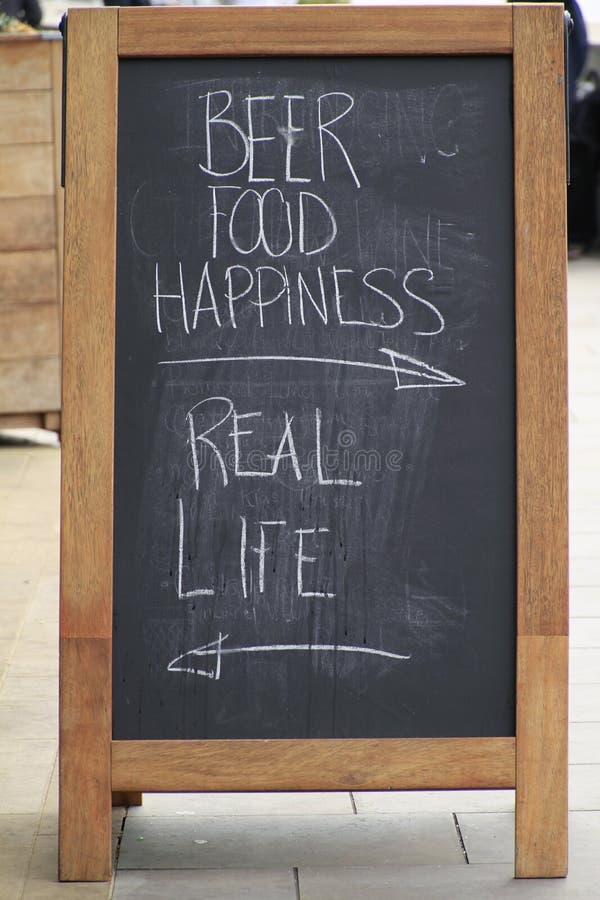 BEER
FOOD
HAPPINESS
REAL
LIFE
dreamstime